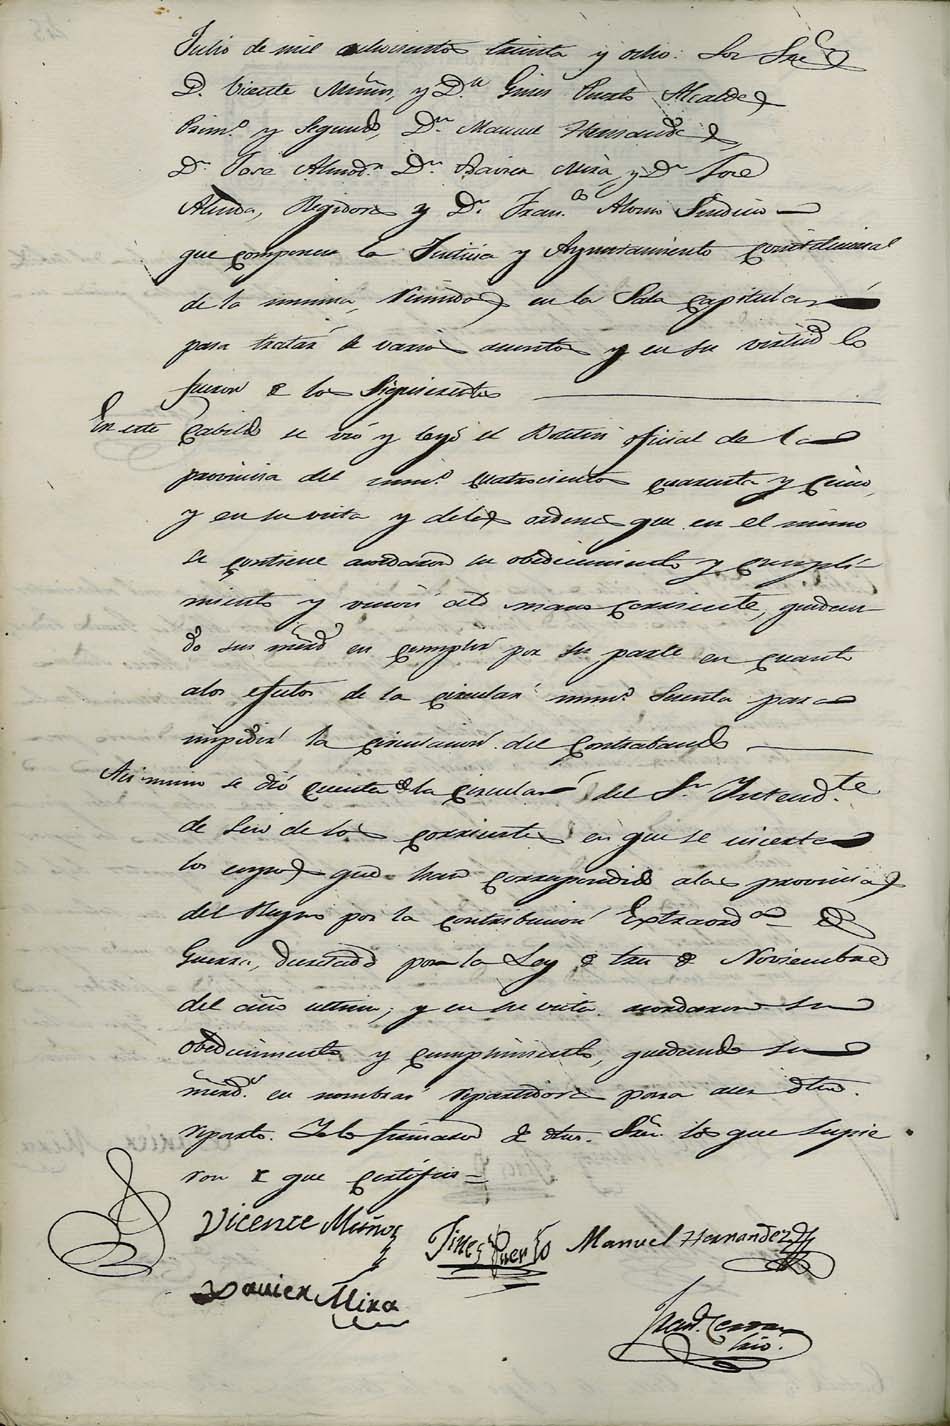 Julio de mil ochocientos treinta y ocho: Los Sres
D. Vicente Muñoz, y Dn Gines Puerto Alcaldes
Primo y Segundo, Dn Manuel Hernandez,
Dn José Dn Xavier Mira, y Dn José
Regidores y Dn Franco Alonso Sindico
que componen la Justicia y Ayuntamiento Constitucional
de la misma, reunidos en la Sala Capitular
para tratar de varios asuntos y en su virtud lo
fueron de los Siguientes
En este Cabildo se vió y leyó el Boletin oficial de la
provincia del numo cuatrocientos cuarenta y cinco,
y en su vista y delas ordenes que en el mismo
se contiene acordaron su obedecimiento y cumpli
miento y corriente, quedan
do sus mercds en cumplir por su parte en cuanto
alos efectos de la circular numo Sesenta para
impedir la circulacion del Contrabando
Asi mismo se dió cuenta de la circular del Sr Intendte
de Seis de los corrientes en que se incerta
los cupos que han correspondido alas provincias
del Reyno por la contribucion Extraorda de
Guerra, decretada por la Ley de tres de Noviembre
del año ultimo, y en su vista acordaron su
obedecimiento y cumplimiento, quedando sus
mercds en nombrar repartidores para dho
reparto. Y lo firmaron de dhos Sres los que supie
ron de que certifico =
Vicente Muñoz
Jines Puerto Manuel Hernandez
Xavier Mira